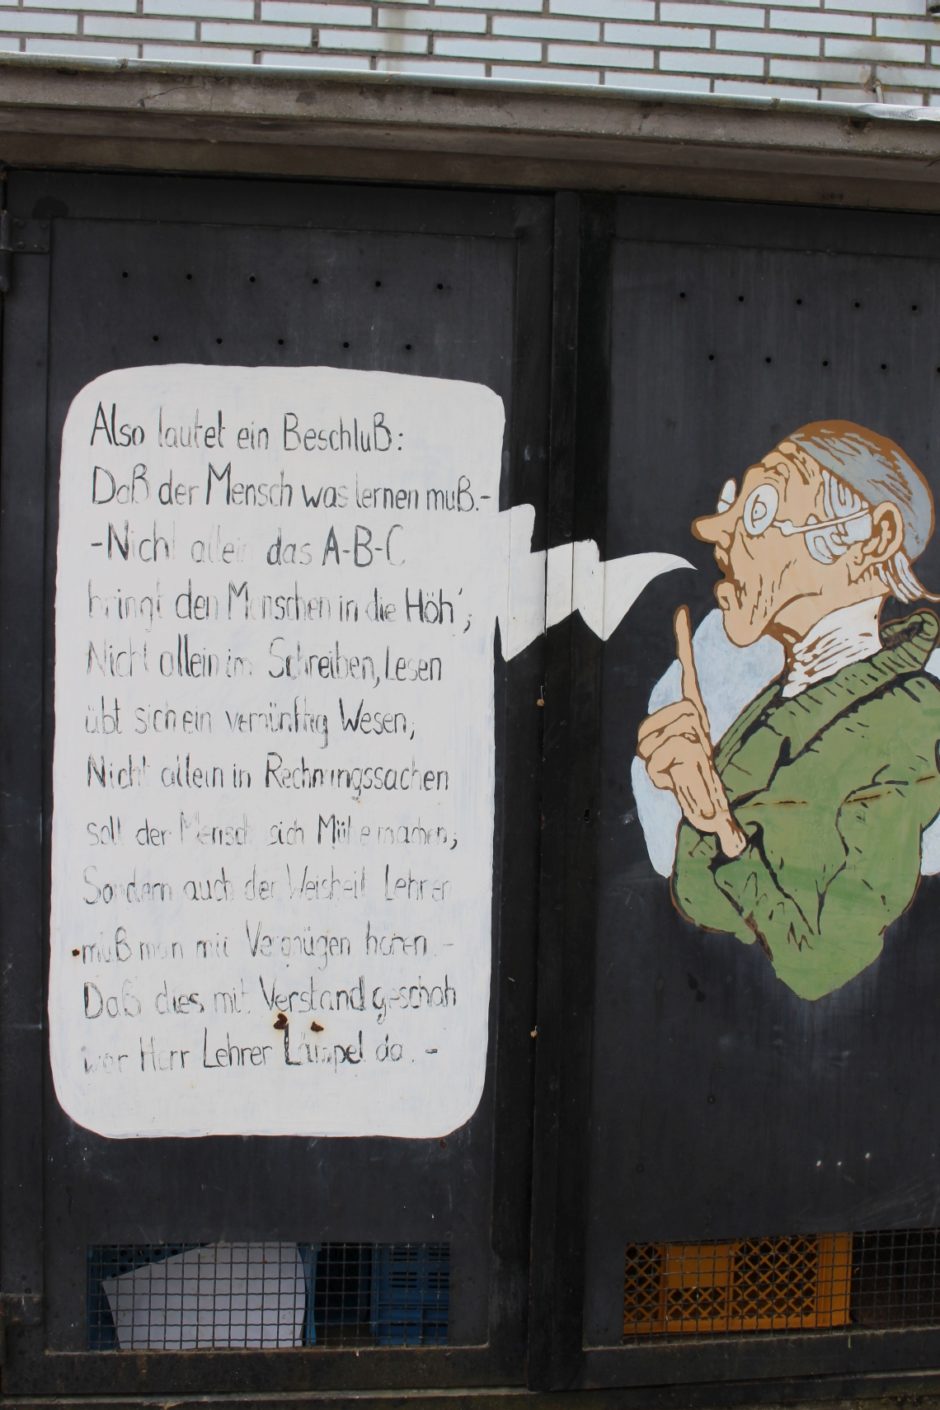 Also lautet ein Beschluß:
Daß der Mensch was lernen muß.-
-Nicht allein das A-B-C
bringt den Menschen in die Höh';
Nicht allein im Schreiben, Lesen
übt sich ein vernünftig Wesen;
Nicht allein in Rechnungssachen
soll der Mensch sich Mühe machen;
Sondern auch der Weisheit Lehren
muß man mit Vergnügen hören.-
Daß dies mit Verstand geschah
war Herr Lehrer Lämpel da.-